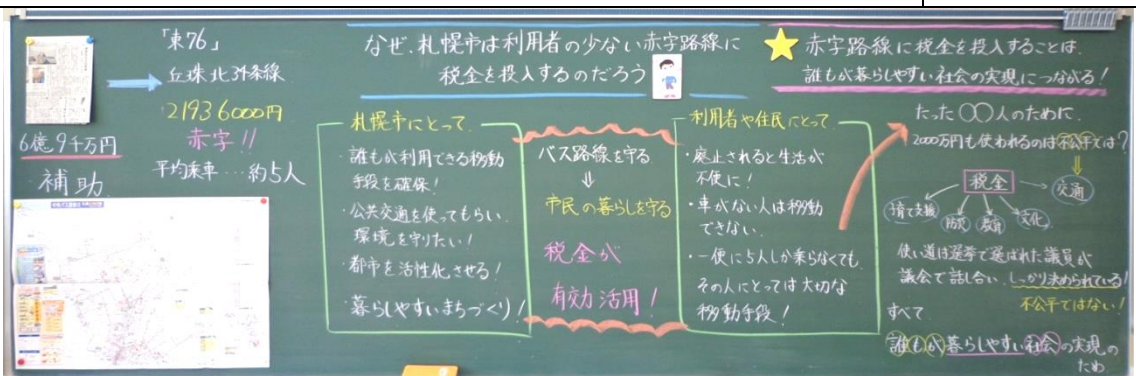 「東76」
丘珠北34条線
21936000円
赤字!!
平均乗車…約5人
6億9千万円
補助
なぜ、札幌市は利用者の少ない赤字路線に
税金を投入するのだろう
札幌市にとって
・誰もが利用できる移動
手段を確保!
・公共交通を使ってもらい、
環境を守りたい!
・都市を活性化させる!
・暮らしやすいまちづくり!
バス路線を守る
⇓
市民の暮らしを守る
税金が
有効活用!
利用者や住民にとって
・廃止されると生活が
不便に!
・車がない人は移動
できない。
・一便に5人しか乗らなくても、
その人にとっては大切な
移動手段!
赤字路線に税金を投入することは、
誰もが暮らしやすい社会の実現につながる!
たった〇〇人のために、
2000万円も使われるのは不公平では?
税金
交通
子育て支援
防災
教育
文化
使い道は選挙で選ばれた議員が
議会で話し合い、しっかり決められている!
不公平ではない!
すべて
誰もが暮らしやすい社会の実現の
ため